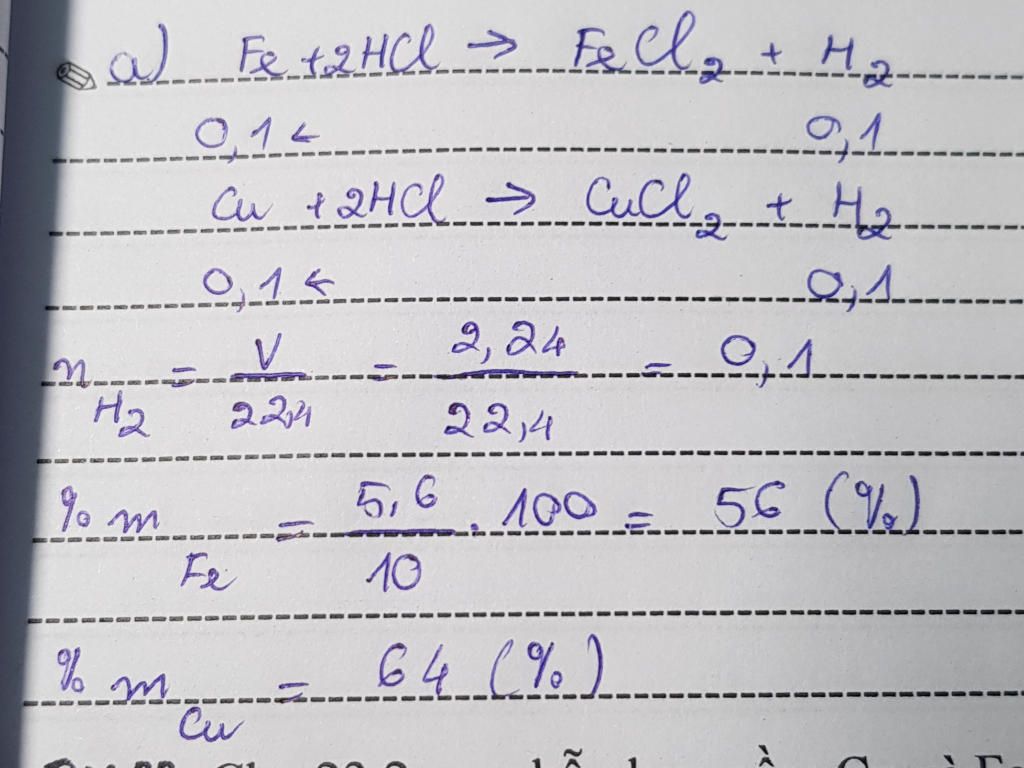 a) Fe + 2HCl → FeCl₂ + H₂
0,1 ← 0,1
Cu + 2HCl → CuCl₂ + H₂
0,1 ← 0,1
n H₂ = V/22,4 = 2,24/22,4 = 0,1
% m Fe = 5,6/10 . 100 = 56 (%)
% m Cu = 64 (%)